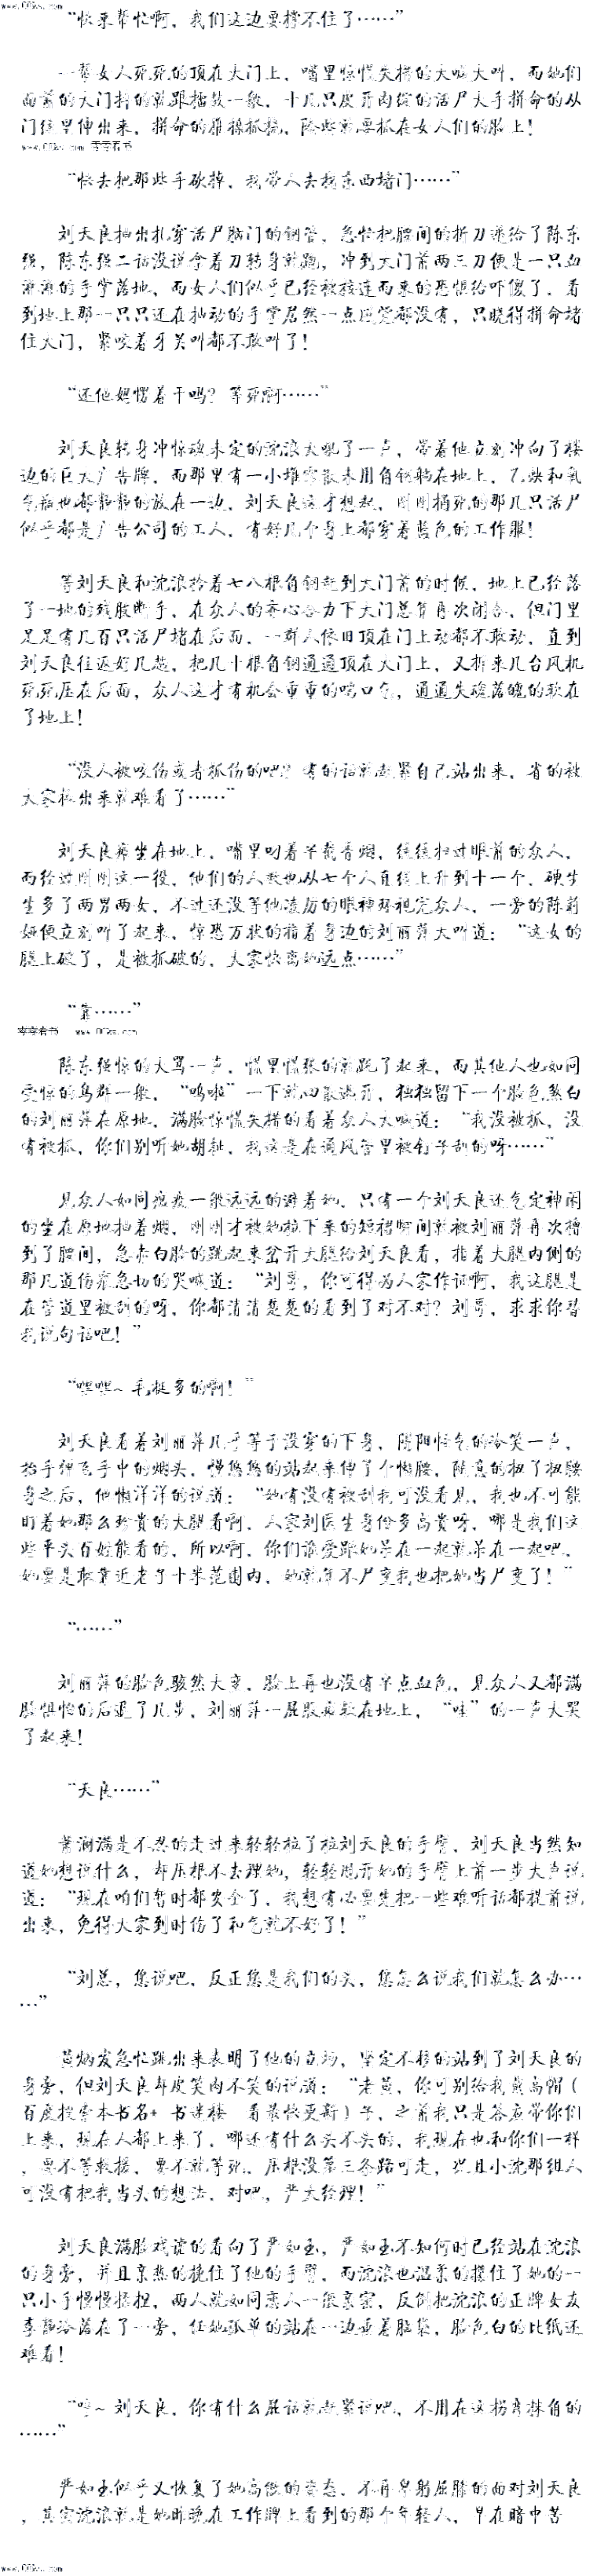 www.00ks.com
“快来帮忙啊，我们这边要撑不住了……”
一帮女人死死的顶在大门上，嘴里惊慌失措的大呼大叫，而她们
面前的大门抖的就跟擂鼓一般，十几只皮开肉绽的活尸大手拼命的从
门缝里伸出来，拼命的抓，险些就要抓在女人们的脸上！
www.00ks.com 零零看书
“快去把那些手砍掉，我带人去找东西堵门……”
刘天良抽出扎穿活尸脑门的钢管，急忙把腰间的折刀递给了陈东
强，陈东强二话没说拿着刀转身就跑，冲到大门前两三刀便是一只血
淋淋的手掌落地，而女人们似乎已经被接连而来的恐惧给吓傻了，看
到地上那一只只还在抽动的手掌居然一点感觉都没有，只晓得拼命堵
住大门，紧咬着牙关叫都不敢叫了！
“还他妈愣着干吗？等死啊……”
刘天良转身冲惊魂未定的沈浪大吼了一声，带着他立刻冲向了楼
边的巨大广告牌，而那里有一小堆零散未用角钢躺在地上，乙炔和氧
气瓶也都静静的放在一边，刘天良这才想起，刚刚捅死的那几只活尸
似乎都是广告公司的工人，有好几个身上都穿着蓝色的工作服！
等刘天良和沈浪拎着七八根角钢赶到大门前的时候，地上已经落
了一地的残肢断手，在众人的齐心合力下大门总算再次闭合，但门里
足足有几百只活尸堵在后面，一群人依旧顶在门上动都不敢动，直到
刘天良往返好几趟，把几十根角钢通通顶在大门上，又拆来几台风机
死死压在后面，众人这才有机会重重的喘口气，通通失魂落魄的软在
了地上！
“没人被咬伤或者抓伤的吧？有的话就赶紧自己站出来，省的被
大家揪出来就难看了……”
刘天良瘫坐在地上，嘴里叼着半截香烟，缓缓扫过眼前的众人，
而经过刚刚这一役，他们的人数也从七个人直线上升到十一个，硬生
生多了两男两女，不过还没等他凌厉的眼神环视完众人，一旁的陈莉
娅便立刻叫了起来，惊恐万状的指着身边的刘丽萍大叫道：“这女的
腿上破了，是被抓破的，大家快离她远点……”
“靠……”
零零看书 www.00ks.com
陈东强惊的大骂一声，慌里慌张的就跳了起来，而其他人也如同
受惊的鸟群一般，“呜啦”一下就四散逃开，独独留下一个脸色煞白
的刘丽萍在原地，满脸惊慌失措的看着众人大喊道：“我没被抓，没
有被抓，你们别听她胡扯，我这是在通风管里被钉子刮的呀……”
见众人如同瘟疫一般远远的避着她，只有一个刘天良还气定神闲
的坐在原地抽着烟，刚刚才被她拉下来的短裙瞬间就被刘丽萍再次撸
到了腰间，急赤白脸的跳起来岔开大腿给刘天良看，指着大腿内侧的
那几道伤痕急切的哭喊道：“刘哥，你可得为人家作证啊，我这腿是
在管道里被刮的呀，你都清清楚楚的看到了对不对？刘哥，求求你替
我说句话吧！”
“嘿嘿~毛挺多的啊！”
刘天良看着刘丽萍几乎等于没穿的下身，阴阳怪气的冷笑一声，
抬手弹飞手中的烟头，慢悠悠的站起来伸了个懒腰，随意的扭了扭腰
身之后，他懒洋洋的说道：“她有没有被刮我可没看见，我也不可能
盯着她那么珍贵的大腿看啊，人家刘医生身份多高贵呀，哪是我们这
些平头百姓能看的，所以啊，你们谁爱跟她呆在一起就呆在一起吧，
她要是敢靠近老子十米范围内，她就算不尸变我也把她当尸变了！”
“……”
刘丽萍的脸色骇然大变，脸上再也没有半点血色，见众人又都满
脸惧怕的后退了几步，刘丽萍一屁股瘫软在地上，“哇”的一声大哭
了起来！
“天良……”
萧澜满是不忍的走过来轻轻拉了拉刘天良的手臂，刘天良当然知
道她想说什么，却压根不去理她，轻轻甩开她的手臂上前一步大声说
道：“现在咱们暂时都安全了，我想有必要先把一些难听话都提前说
出来，免得大家到时伤了和气就不好了！”
“刘总，您说吧，反正您是我们的头，您怎么说我们就怎么办…
…”
黄炳发急忙跳出来表明了他的立场，坚定不移的站到了刘天良的
身旁，但刘天良却皮笑肉不笑的说道：“老黄，你可别给我戴高帽（
百度搜索本书名+ 书迷楼 看最快更新）子，之前我只是答应带你们
上来，现在人都上来了，哪还有什么头不头的，我现在也和你们一样
，要不等救援，要不就等死，压根没第三条路可走，况且小沈那组人
可没有把我当头的想法，对吧，严大经理！”
刘天良满脸戏谑的看向了严如玉，严如玉不知何时已经站在沈浪
的身旁，并且亲热的挽住了他的手臂，而沈浪也温柔的握住了她的一
只小手慢慢揉捏，两人就如同恋人一般亲密，反倒把沈浪的正牌女友
李静冷落在了一旁，任她孤单的站在一边垂着脑袋，脸色白的比纸还
难看！
“哼~刘天良，你有什么屁话就赶紧说吧，不用在这拐弯抹角的
……”
严如玉似乎又恢复了她高傲的姿态，不再卑躬屈膝的面对刘天良
，其实沈浪就是她昨晚在工作牌上看到的那个年轻人，早在暗中苦
www.00ks.com